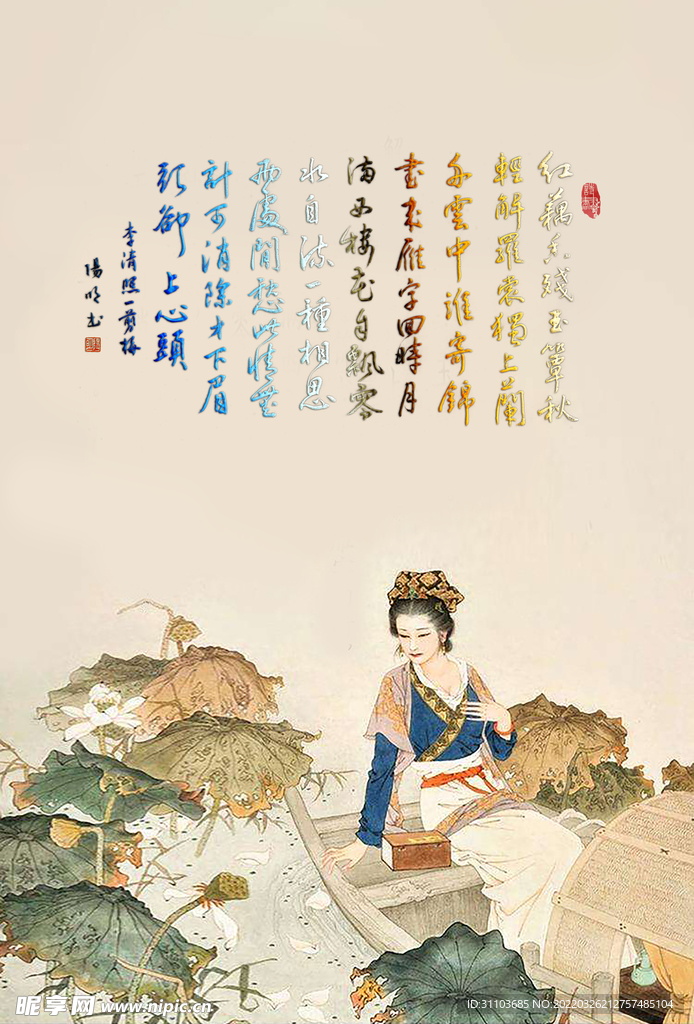 紅藕香殘玉簟秋
輕解羅裳獨上蘭
舟雲中誰寄錦
書來雁字回時月
滿西樓花自飄零
水自流一種相思
兩處閒愁此情無
計可消除才下眉
頭卻上心頭
李清照一剪梅
昵享网 www.nipic.cn
ID:31103685 NO:20220326212757485104